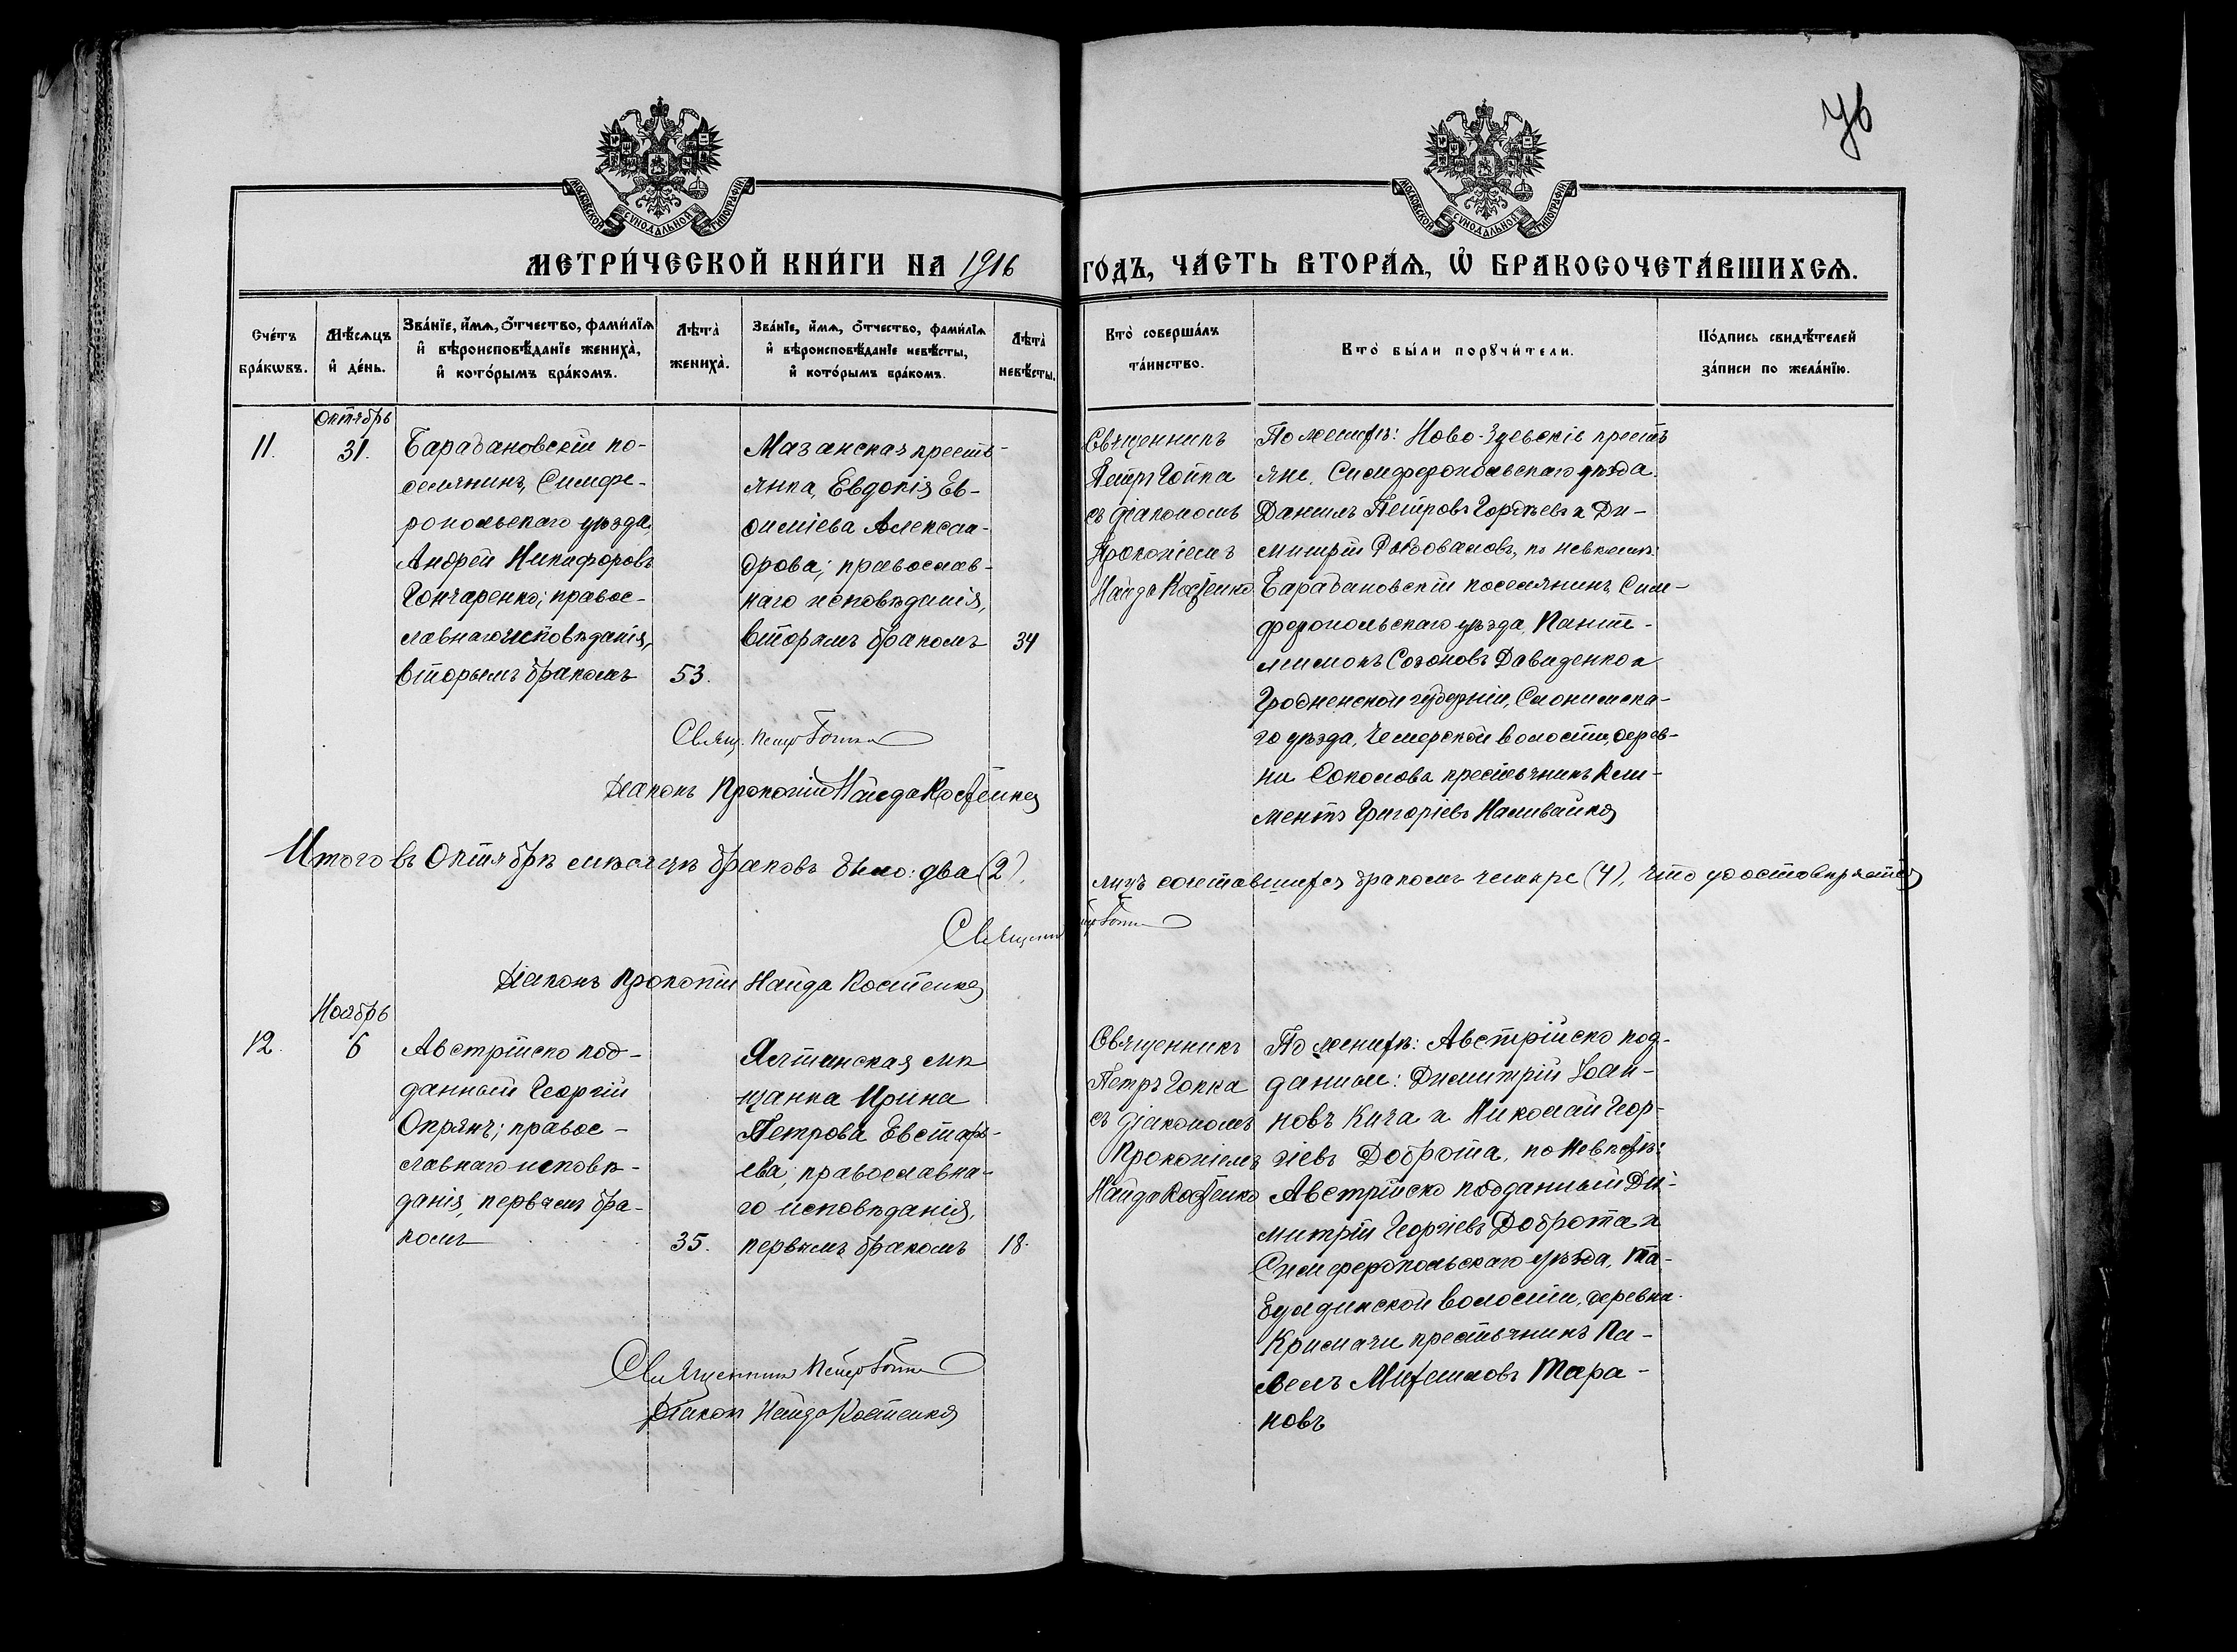 76
МОСКОВСКОЙ СѴНОДАЛЬНОЙ ТИПОГРАФІИ.
МОСКОВСКОЙ СѴНОДАЛЬНОЙ ТИПОГРАФІИ.
МЕТРИ́ЧЕСКОЙ КНИ́ГИ НА 1916 ГО́ДЪ, ЧА́СТЬ ВТОРА́Ѧ, Ѽ БРАКОСОЧЕТА́ВШИХСѦ.
Сче́тъ
бра́кѡвъ.
Мѣ́сѧцъ
и҆ де́нь.
Зва́нїе, и҆́мѧ, ѻ҆́тчество, фами́лїѧ
и҆ вѣроисповѣ́данїе жениха̀,
и҆ кото́рымъ бра́комъ.
Лѣта̀
жениха̀.
Зва́нїе, и҆́мѧ, ѻ҆́тчество, фами́лїѧ
и҆ вѣроисповѣ́данїе невѣ́сты,
и҆ кото́рымъ бра́комъ.
Лѣта̀
невѣ́сты.
Кто̀ соверша́лъ
та́инство.
Кто̀ бы́ли порꙋчи́тели.
По́дпись свидѣ́телей
за́писи по жела́нїю.
Октябрь
11.
31.
Барабановскій по-
селянинъ, Симфе-
ропольскаго уѣзда,
Андрей Никифоровъ
Гончаренко; правос-
лавнаго исповѣданія,
вторымъ бракомъ
53.
Мазанская кресть-
янка, Евдокія Ев-
фиміева Алексан-
дрова; православ-
наго исповѣданія,
вторымъ бракомъ
34
Священникъ
Петръ Гопка
съ діакономъ
Прокопіемъ
Найда Костенко
По женихѣ: Ново-Зуевскіе крестъ
яне, Симферопольскаго уѣзда
Даніилъ Петровъ Гордѣевъ и Ди-
митрій по невѣстѣ:
Барабановскій поселянинъ Сим-
феропольскаго уѣзда, Панте-
лимонъ Созоновъ Давиденко и
Гродненской губерніи, Слонимска-
го уѣзда, Чемерской волости, дерев-
ни Соколова крестьянинъ Кли-
ментъ Григоріевъ Наливайко
Свящ. Петръ Гопка
Діаконъ Прокопій Найда Костенко
Итого въ Октябрѣ мѣсяцѣ браковъ было: два (2),
лицъ сочетавшихся бракомъ четыре (4), что удостовѣряется
Священ Петръ Гопка
Діаконъ Прокопій Найда Костенко
Ноябрь
12.
6
Австрійско под-
данный Георгій
Опрянъ; правос-
лавнаго исповѣ-
данія, первымъ бра-
комъ
35.
Ялтинская мѣ
щанка Ирина
Петрова Евстафь-
ева; православна-
го исповѣданія,
первымъ бракомъ
18.
Священникъ
Петръ Гопка
съ діакономъ
Прокопіемъ
Найда Костенко
По женихѣ: Австрійско под-
данные: Димитрій Іоан-
новъ Кича и Николай Геор-
гіевъ Доброта, по невѣстѣ:
Австрійско подданный Ди-
митрій Георгіевъ Доброта и
Симферопольскаго уѣзда, Та-
булдинской волости, деревни
крестьянинъ Па-
велъ Михаиловъ Тара-
новъ
Священникъ Петръ Гопка
Діаконъ Найда Костенко